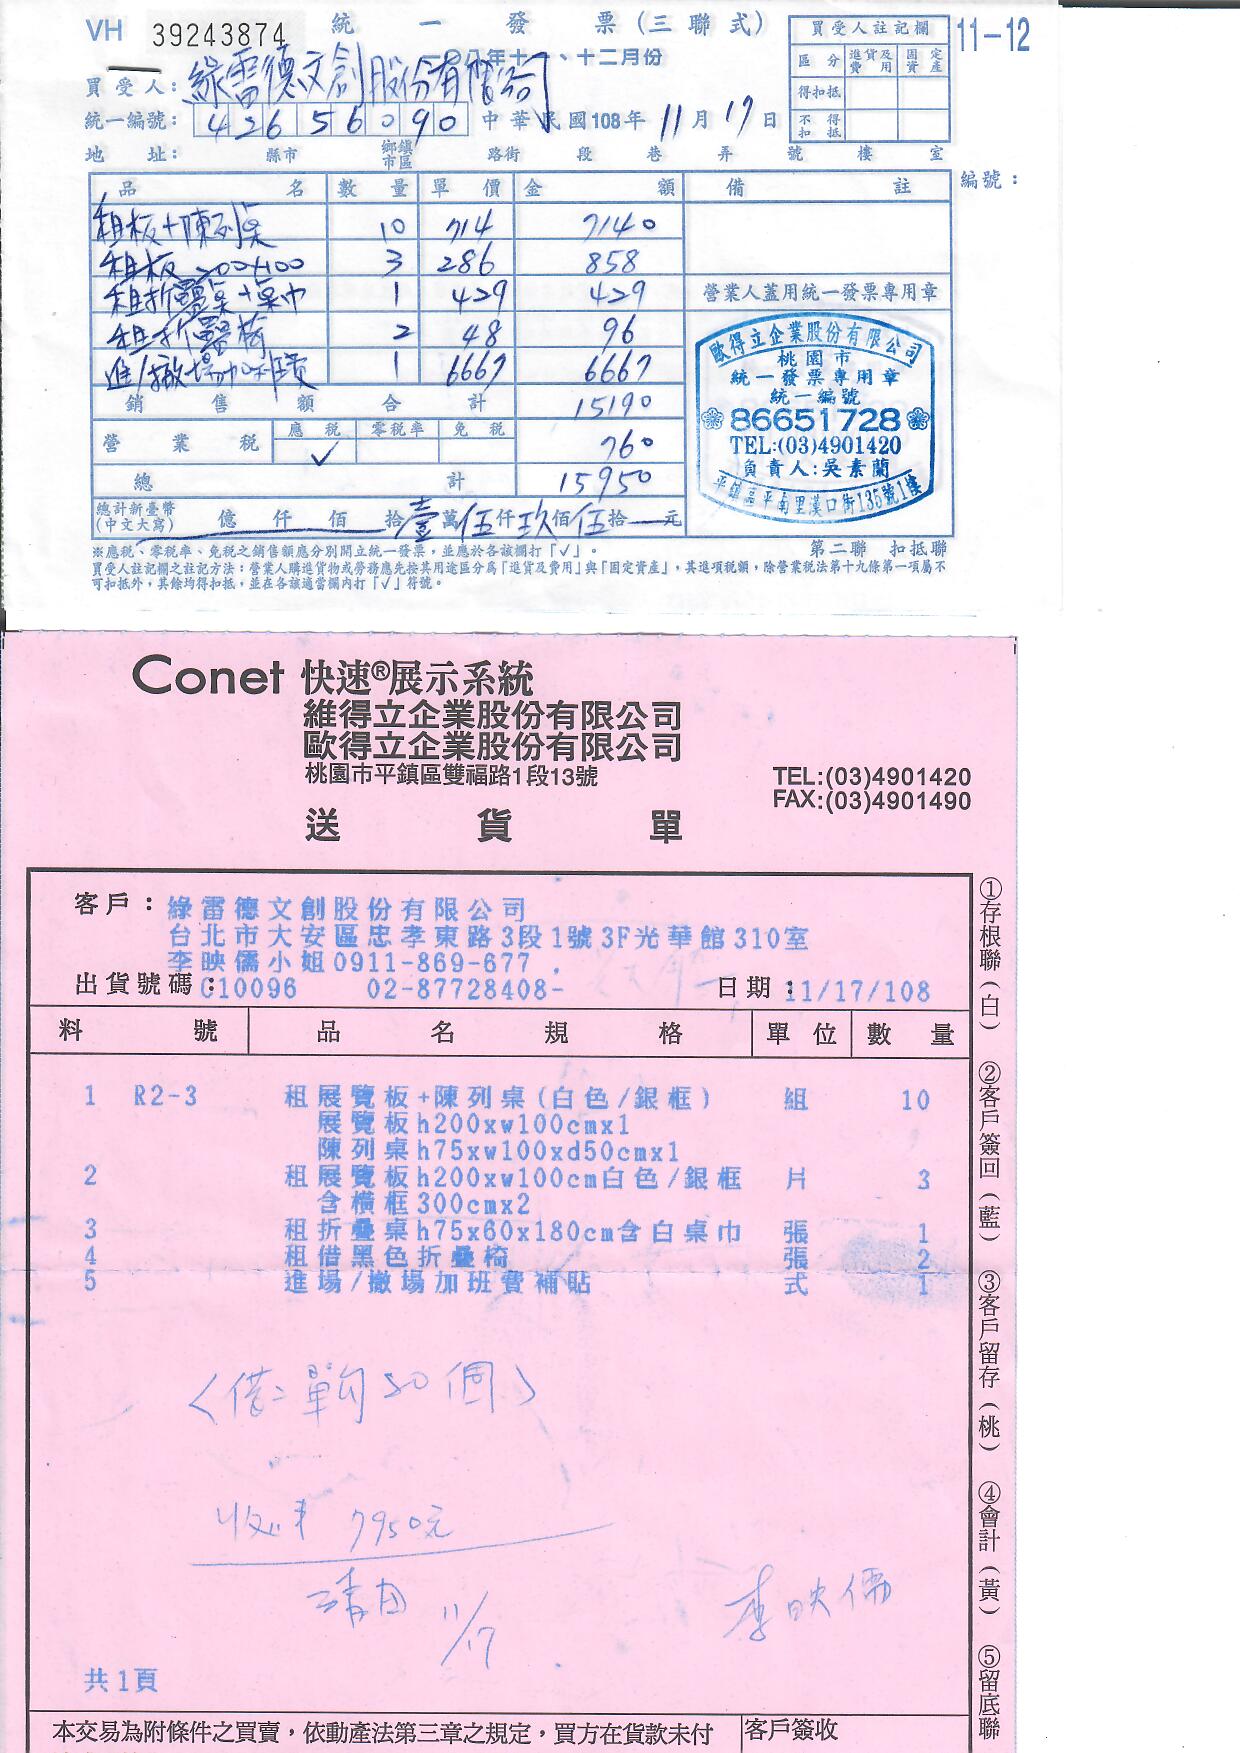 VH 39243874 統一發票(三聯式) 11-12
一〇八年十一、十二月份
買受人: 綠雷德文創股份有限公司
統一編號: 42656090 中華民國108年 11月 17日
地址: 縣市 鄉鎮市區 路街 段 巷 弄 號 樓 室
買受人註記欄
區分 進貨及費用 固定資產
得扣抵
不得扣抵
編號:
品名 數量 單價 金額 備註
租板+陳列桌 10 714 7140
租板 200x100 3 286 858
租折疊桌+桌巾 1 429 429
租折疊椅 2 48 96
進/撤場加班費 1 6667 6667
銷售額合計 15190
營業稅 應稅 ✓ 零稅率 免稅 760
總計 15950
總計新臺幣(中文大寫) 億 仟 佰 拾 壹 萬 伍 仟 玖 佰 伍 拾 元
營業人蓋用統一發票專用章
歐得立企業股份有限公司
桃園市
統一發票專用章
統一編號
86651728
TEL:(03)4901420
負責人:吳素蘭
平鎮區平南里漢口街135號1樓
※應稅、零稅率、免稅之銷售額應分別開立統一發票,並應於各該欄打「✓」。 第二聯 扣抵聯
買受人註記欄之註記方法:營業人購進貨物或勞務應先按其用途區分為「進貨及費用」與「固定資產」,其進項稅額,除營業稅法第十九條第一項屬不
可扣抵外,其餘均得扣抵,並在各該適當欄內打「✓」符號。
Conet 快速®展示系統
維得立企業股份有限公司
歐得立企業股份有限公司
桃園市平鎮區雙福路1段13號
TEL:(03)4901420
FAX:(03)4901490
送貨單
客戶: 綠雷德文創股份有限公司
台北市大安區忠孝東路3段1號3F光華館310室
李映儒小姐0911-869-677
出貨號碼: C10096 02-87728408- 日期: 11/17/108
料號 品名規格 單位 數量
1 R2-3 租展覽板+陳列桌(白色/銀框) 組 10
展覽板h200xw100cmx1
陳列桌h75xw100xd50cmx1
2 租展覽板h200xw100cm白色/銀框 片 3
含橫框300cmx2
3 租折疊桌h75x60x180cm含白桌巾 張 1
4 租借黑色折疊椅 張 2
5 進場/撤場加班費補貼 式 1
<借: 單勾 20個>
7950元
11/17
李映儒
共1頁
本交易為附條件之買賣,依動產法第三章之規定,買方在貨款未付
客戶簽收
①存根聯(白) ②客戶簽回(藍) ③客戶留存(桃) ④會計(黃) ⑤留底聯